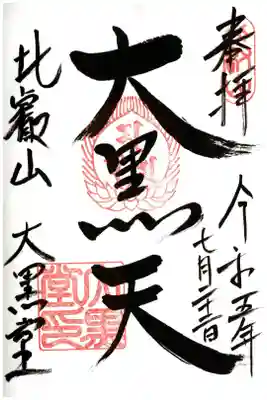 奉拝
令和五年
七月
大黒天
比叡山 大黒堂
大黒
堂印